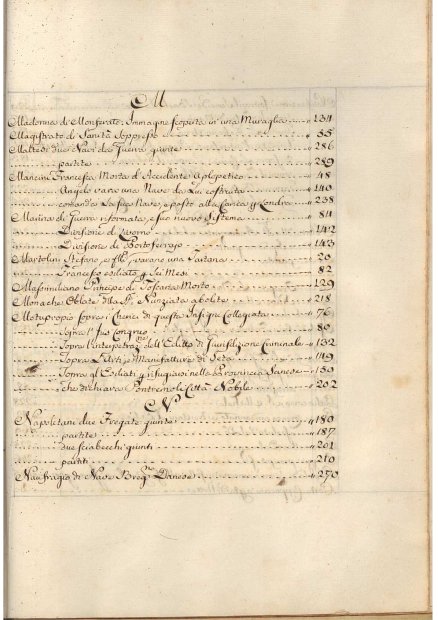 M
Madonna di Monferato Immagine scoperta in una Muraglia 134
Magistrato di Sanità Soppresso 35
Maltesi due Navi da Guerra giunte 286
partite 289
Mancini Francesca Morta d'Accidente Aplopetico 48
Angelo vara una Nave da Lui costruita 140
comanda Nave, e posto alla Carica Londra 238
Marina di Guerra riformata, e suo nuovo Sistema 84
Divisione di Livorno 142
Divisione di Portoferrajo 143
Martolini Stefano, e varano una Tartana 20
Francesco esiliato p Sei Mesi 82
Massimiliano Principe di Toscana Morto 129
Monache Oblate della SS. Nunziata abolite 218
Motuproprio sopra i Cherici di questa Insigne Collegiata 76
Sopra l' 80
Sopra l'interpetraz. dell'Editto di Criminale 132
Sopra l'Arti, e Manifatture di Seta 149
Sopra gl'Esiliati, rifugiati nella Provincia Sanese 150
Che dichiara Pontremoli Città Nobile 202
N
Napoletani due Fregate giunte 180
partite 187
due sciabecchi giunti 201
partiti 210
Naufragio di Nave Danese 270